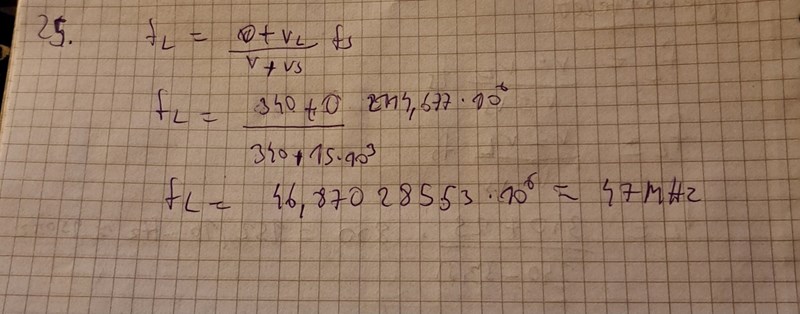 25. fL = v+vL / v+vs fs
fL = 340+0 / 340+15·10³ 2114,677·10⁶
fL = 46,87028553·10⁶ = 47MHz